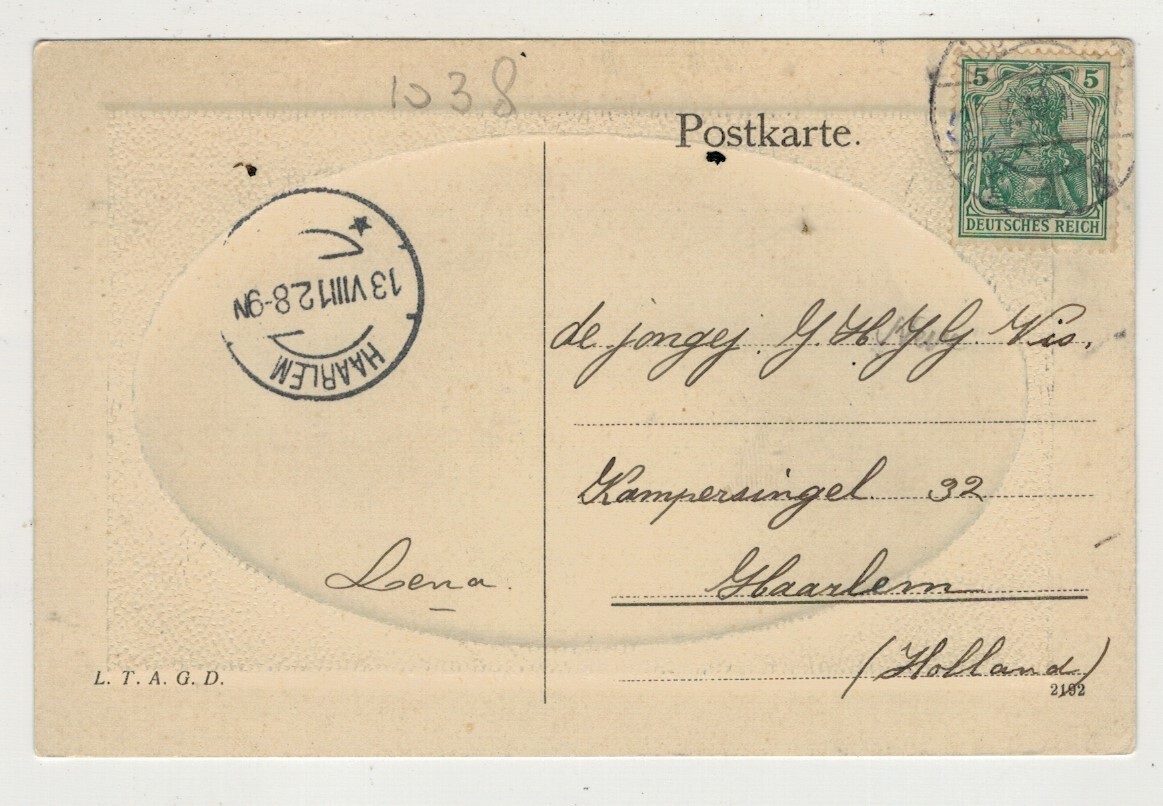 1038
Postkarte.
5 5
DEUTSCHES REICH
HAARLEM
13 VIII 12 8-9N
de jongej. G. H. J. G. Vis.
Kampersingel 32
Haarlem
(Holland)
Lena.
L. T. A. G. D.
2192